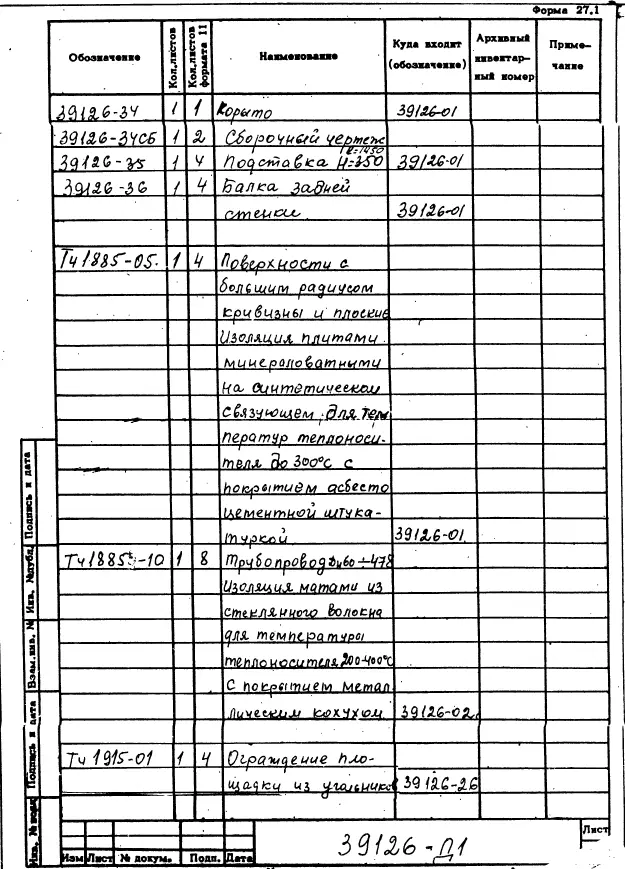 Форма 27.1
Обозначение Кол.листов Кол.листов формата 11 Наименование Куда входит (обозначение) Архивный инвентар- ный номер Приме- чание
39126-34 1 1 Корыто 39126-01
39126-34СБ 1 2 Сборочный чертеж
39126-35 1 4 Подставка H=350 39126-01
39126-36 1 4 Балка задней
стенки 39126-01
Тч1885-05. 1 4 Поверхности с
большим радиусом
кривизны и плоские
Изоляция плитами
минераловатными
на синтетическом
связующем, для тем
ператур теплоноси-
теля до 300°С с
покрытием асбесто
цементной штука-
туркой 39126-01
Тч1885-10 1 8 Трубопровод Ду60÷478
Изоляция матами из
стеклянного волокна
для температуры
теплоносителя 200-400°С
С покрытием метал
лическим кожухом 39126-02.
Тч1915-01 1 4 Ограждение пло-
щадки из угольников 39126-26
Подпись и дата
Инв. №дубл.
Взам.инв. №
Подпись и дата
Инв. № подл
Изм Лист № докум. Подп. Дата
39126-Д1
Лист